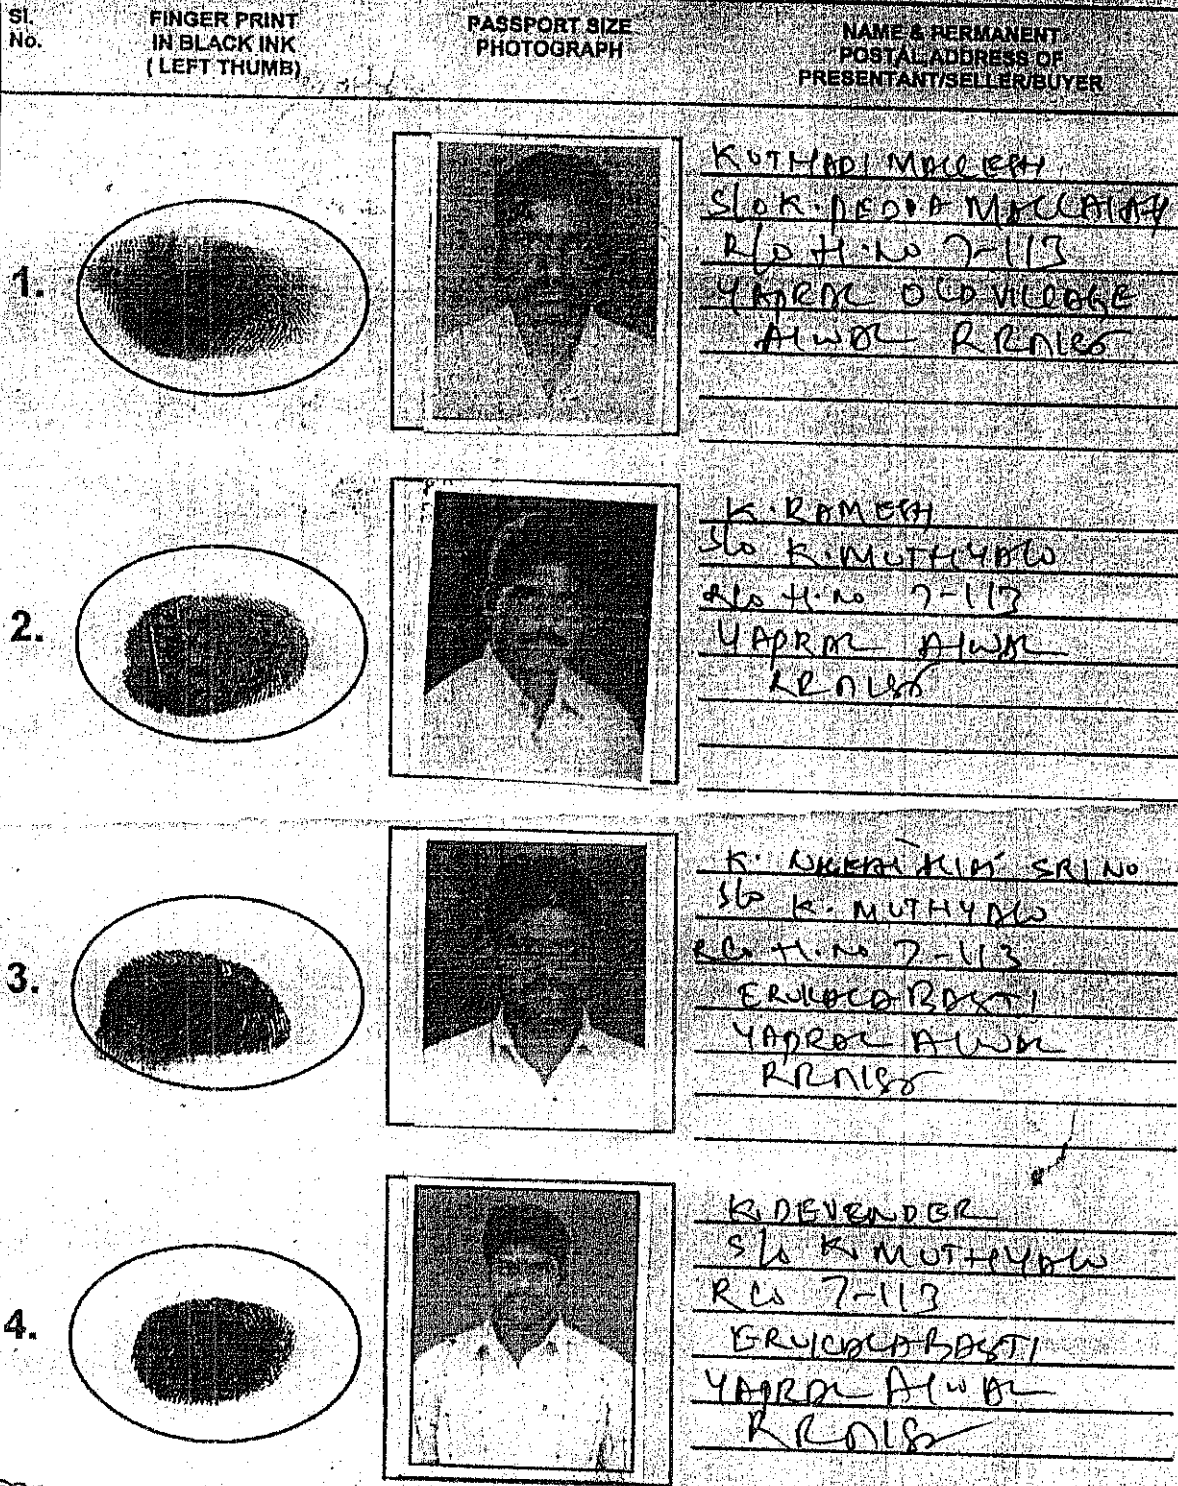 Sl.
No.
FINGER PRINT
IN BLACK INK
( LEFT THUMB)
PASSPORT SIZE
PHOTOGRAPH
NAME & PERMANENT
POSTAL ADDRESS OF
PRESENTANT/SELLER/BUYER
1.
KUTHADI MALLESH
S/o K. PEDDA MALLAIAH
R/o H.No 7-113
YAPRAL OLD VILLAGE
ALWAL RR Dist
2.
K. RAMESH
S/o K. MUTHYALU
R/o H.No 7-113
YAPRAL ALWAL
RR Dist
3.
K. SRINO
S/o K. MUTHYALU
R/o H.No 7-113
ERUKALA BASTI
YAPRAL ALWAL
RR Dist
4.
K. DEVENDER
S/o K. MUTHYALU
R/o 7-113
ERUKALA BASTI
YAPRAL ALWAL
RR Dist